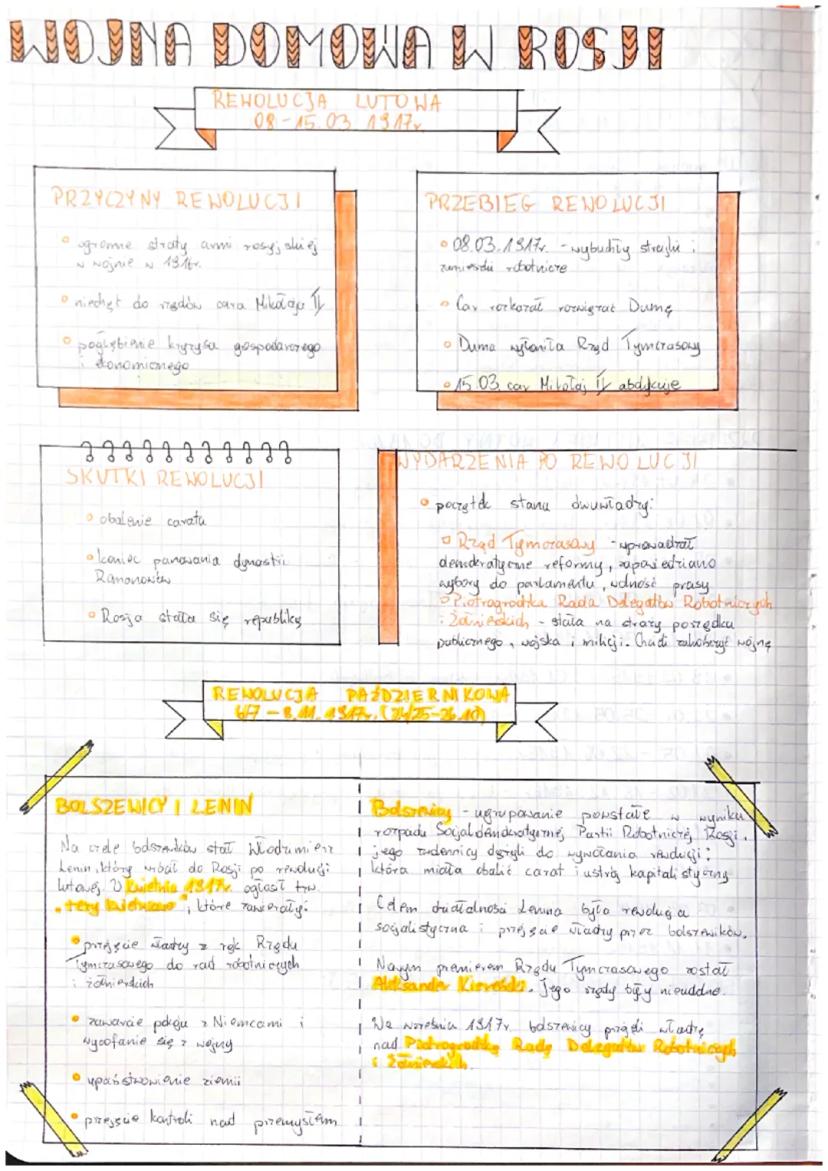 WOJNA DOMOWA W ROSJI
REWOLUCJA LUTOWA
08-15.03.1917r.
PRZYCZYNY REWOLUCJI
ogromne straty armi rosyjskiej
w wojnie w 1916r.
niechęt do rządów cara Mikołaja II
pogłębienie kryzysu gospodarczego
i ekonomicznego
PRZEBIEG REWOLUCJI
08.03.1917r. - wybuchły strajki i
zamieszki robotnicze
Car rozkazał rozwiązać Dumę
Duma wyłoniła Rząd Tymczasowy
15.03. car Mikołaj II abdykuje
SKUTKI REWOLUCJI
obalenie caratu
koniec panowania dynastii
Romanowów
Rosja stała się republiką
WYDARZENIA PO REWOLUCJI
początek stanu dwuwładzy:
Rząd Tymczasowy - wprowadzał
demokratyczne reformy, zapowiedziano
wybory do parlamentu, wolność prasy
Piotrogrodzka Rada Delegatów Robotniczych
i Żołnierskich - stała na straży porządku
publicznego, wojska i milicji. Chcieli zakończyć wojnę
REWOLUCJA PAŹDZIERNIKOWA
6/7 - 8.11.1917r. (24/25-26.10)
BOLSZEWICY I LENIN
Na czele bolszewików stał Włodzimierz
Lenin, który wrócił do Rosji po rewolucji
lutowej. W kwietniu 1917r. ogłosił tzw.
"tezy kwietniowe", które zawierały:
przejęcie władzy z rąk Rządu
Tymczasowego do rad robotniczych
i żołnierskich
zawarcie pokoju z Niemcami i
wycofanie się z wojny
upaństwowienie ziemii
przejęcie kontroli nad przemysłem
Bolszewicy - ugrupowanie powstałe w wyniku
rozpadu Socjaldemokratycznej Partii Robotniczej Rosji.
jego zwolennicy dążyli do wywołania rewolucji,
która miała obalić carat i ustrój kapitalistyczny
Celem działalności Lenina była rewolucja
socjalistyczna i przejęcie władzy przez bolszewików.
Nowym premierem Rządu Tymczasowego został
Aleksander Kiereński. Jego rządy były nieudolne.
We wrześniu 1917r. bolszewicy przejęli władzę
nad Piotrogrodzką Radą Delegatów Robotniczych
i Żołnierskich.